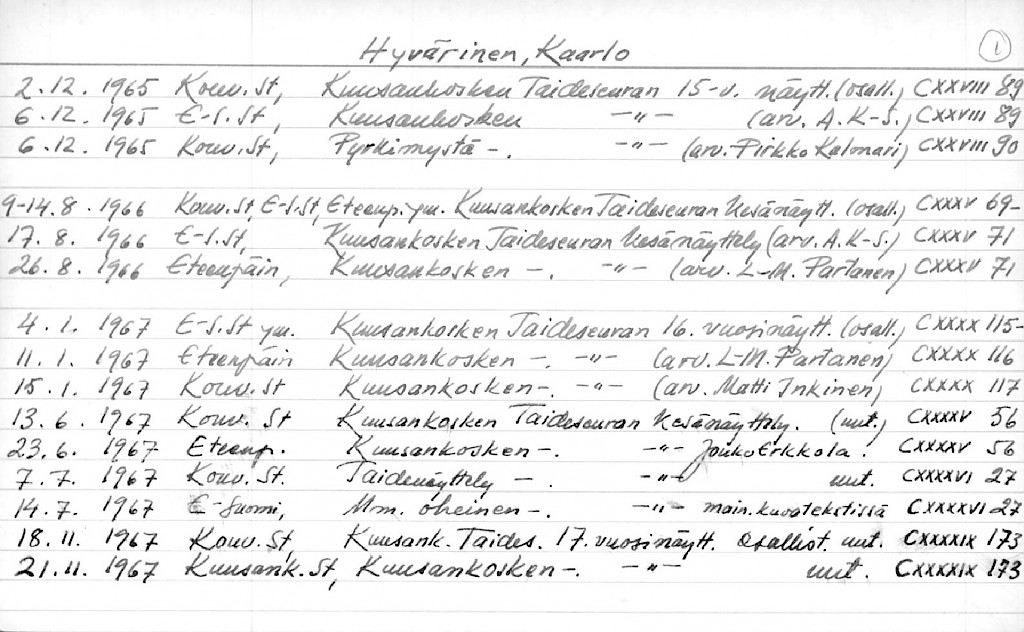 Hyvärinen, Kaarlo 1
2.12. 1965 Kouv. St, Kuusankosken Taideseuran 15-v. näytt. (osall.) CXXVIII 89
6.12. 1965 E-S. St, Kuusankosken -"- (arv. A. K-S.) CXXVIII 89
6.12. 1965 Kouv. St, Pyrkimystä -. -"- (arv. Pirkko Kalmari) CXXVIII 90
9-14.8. 1966 Kouv. St, E-S. St, Eteenp. ym. Kuusankosken Taideseuran kesänäytt. (osall.) CXXXV 69-
17. 8. 1966 E-S. St, Kuusankosken Taideseuran kesänäyttely (arv. A. K-S.) CXXXV 71
26. 8. 1966 Eteenpäin, Kuusankosken -. -"- (arv. L-M. Partanen) CXXXV 71
4. 1. 1967 E-S. St ym. Kuusankosken Taideseuran 16. vuosinäytt. (osall.) CXXXX 115-
11. 1. 1967 Eteenpäin Kuusankosken -. -"- (arv. L-M. Partanen) CXXXX 116
15. 1. 1967 Kouv. St Kuusankosken -. -"- (arv. Matti Inkinen) CXXXX 117
13. 6. 1967 Kouv. St Kuusankosken Taideseuran kesänäyttely. (uut.) CXXXXV 56
23. 6. 1967 Eteenp. Kuusankosken -. -"- Jouko Erkkola. CXXXXV 56
7. 7. 1967 Kouv. St. Taidenäyttely -. -"- uut. CXXXXVI 27
14. 7. 1967 E-Suomi, Mm. oheinen -. -"- main. kuvatekstissä CXXXXVI 27
18. 11. 1967 Kouv. St, Kuusank. Taides. 17. vuosinäytt. Osallist. uut. CXXXXIX 173
21. 11. 1967 Kuusank. St, Kuusankosken -. -"- uut. CXXXXIX 173